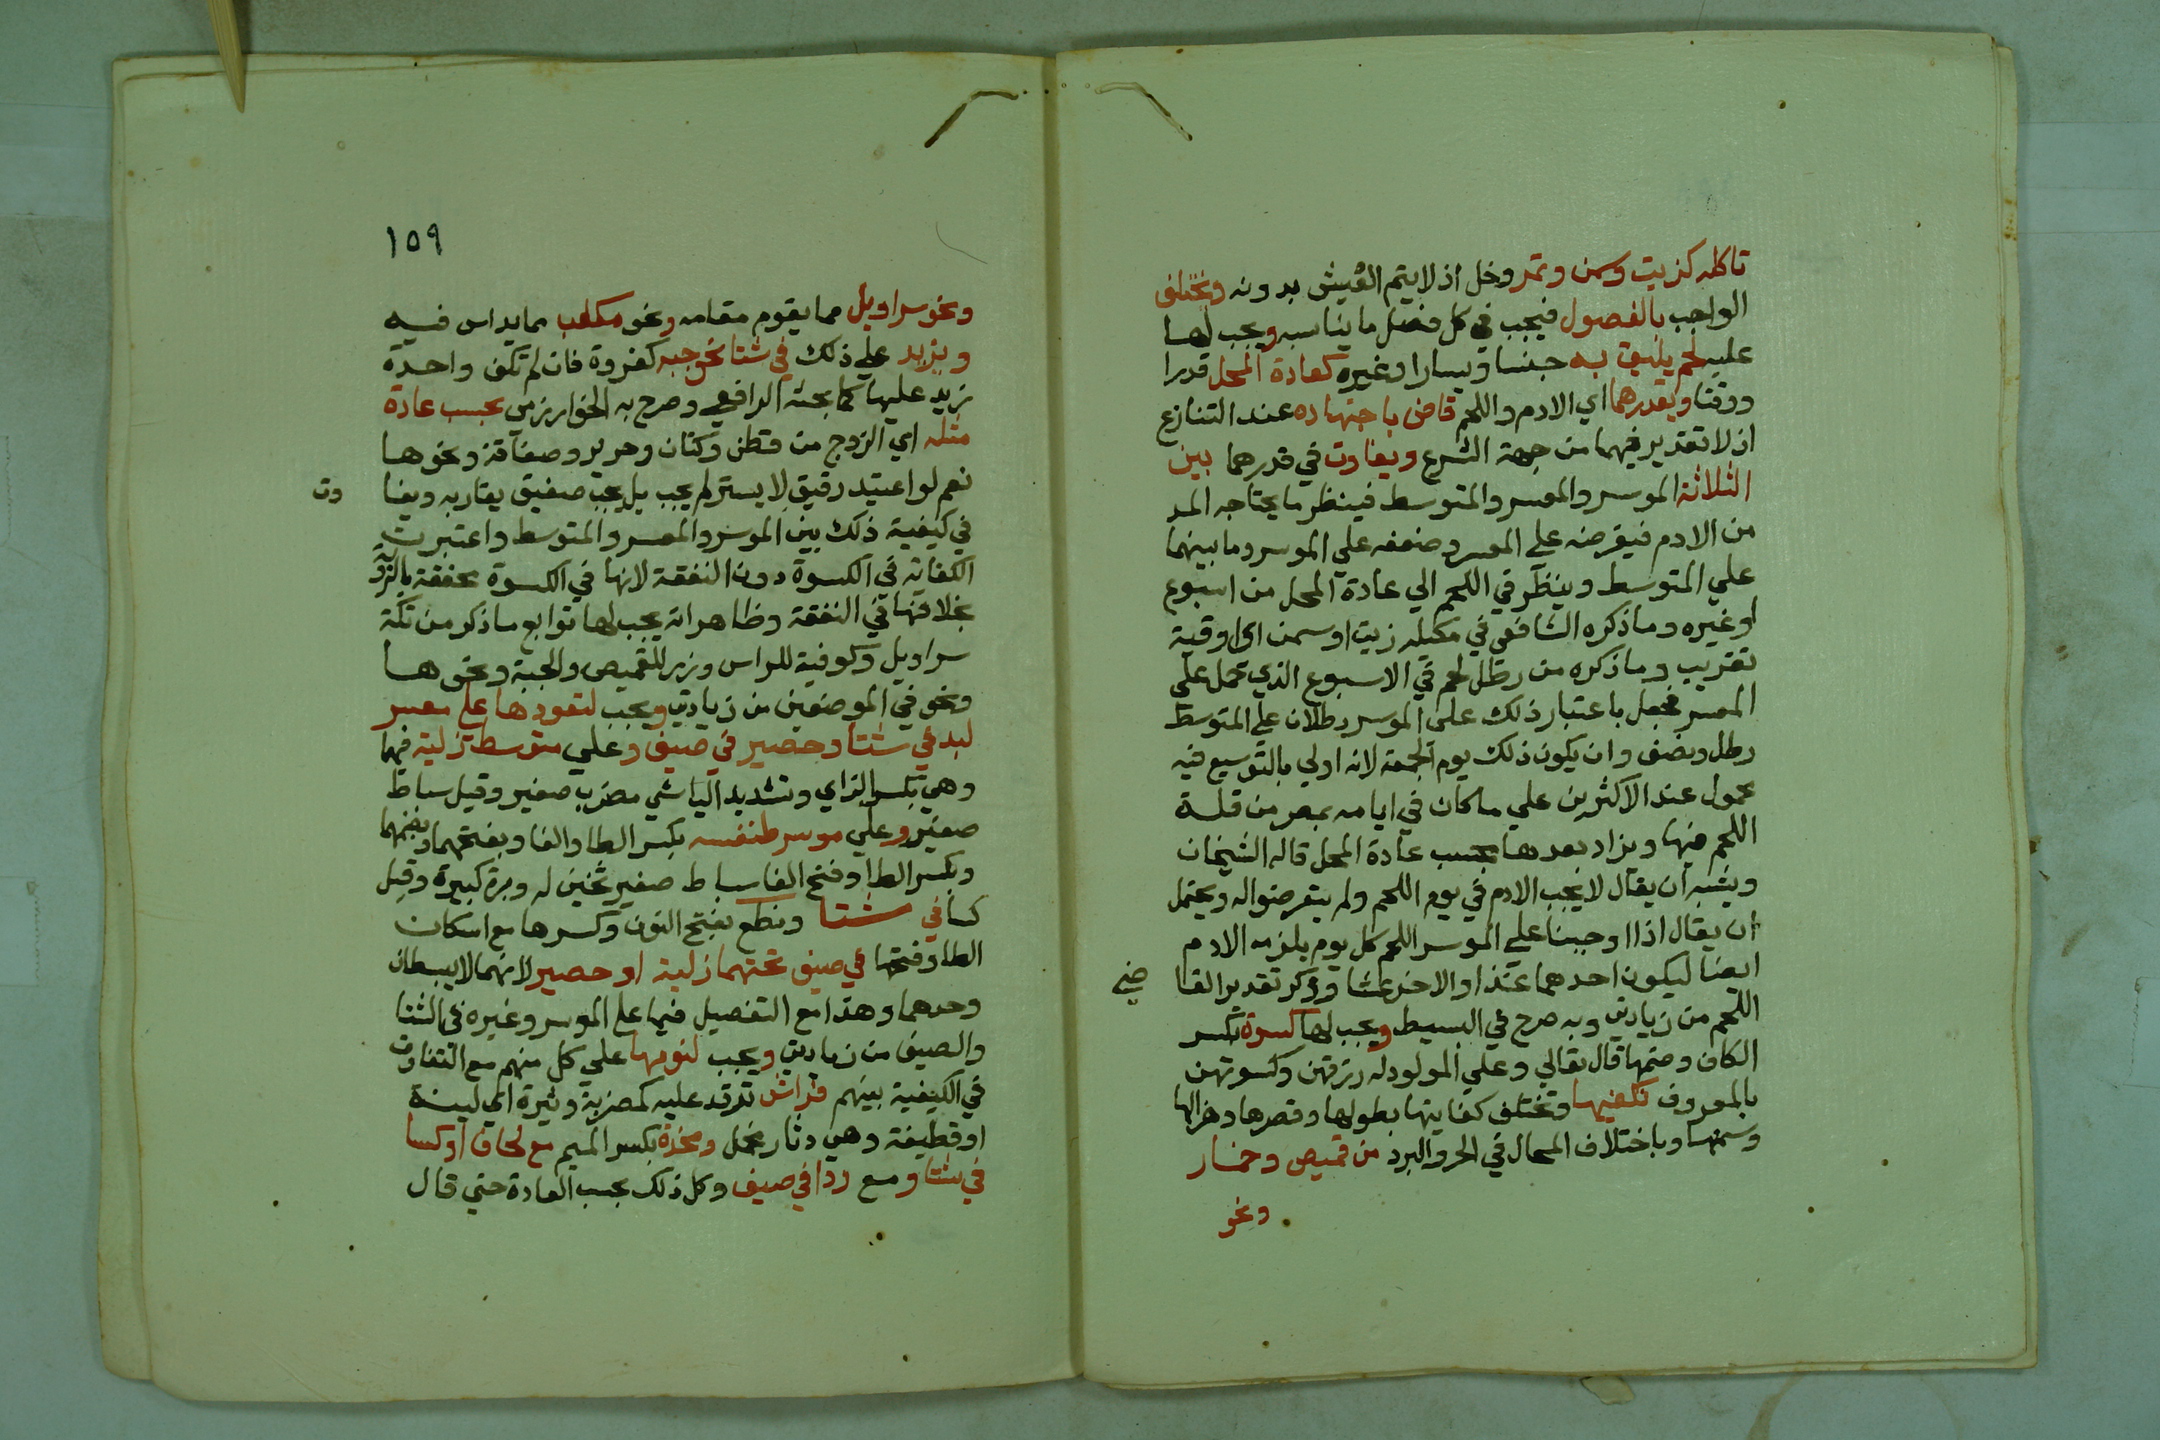 تاكله كزيت وسمن وتمر وخل اذ لا يتم العيش بدونه ويختلف
الواجب بالفصول فيجب في كل فصل ما يناسبه ويجب لها
عليه لحم يليق به جنسا ويسارا وغيره كعادة المحل قدرا
ووقتا ويقدرهما اي الادم واللحم قاض باجتهاده عند التنازع
اذ لا تقدير فيهما من جهة الشرع ويفاوت في قدرهما بين
الثلاثة الموسر والمعسر والمتوسط فينظر ما يحتاجه المد
من الادم فيفرضه على المعسر وضعفه علي الموسر وما بينهما
علي المتوسط وينظر في اللحم الي عادة المحل من اسبوع
او غيره وما ذكره الشافعي في مكيله زيت او سمن اي اوقية
تقريب وما ذكره من رطل لحم في الاسبوع الذي حمل علي
المعسر فجعل باعتبار ذلك على الموسر رطلان علي المتوسط
رطل ونصف وان يكون ذلك يوم الجمعة لانه اولي بالتوسيع فيه
محمول عند الاكثرين علي ما كان في ايامه بمصر من قلة
اللحم فيها ويزاد بعدها بحسب عادة المحل قاله الشيخان
ويشبه ان يقال لا يجب الادم في يوم اللحم ولم يتعرضوا له ويحتمل
ان يقال اذا اوجبنا علي الموسر اللحم كل يوم يلزمه الادم
ايضا ليكون احدهما غذا والاخر عشا وذكر تقدير القا
ضي
اللحم من زيادتي وبه صرح في البسيط ويجب لها كسوة بكسر
الكاف وضمها قال تعالي وعلي المولود له رزقهن وكسوتهن
بالمعروف تكفيها وتختلف كفايتها بطولها وقصرها وهزالها
وسمنها وباختلاف المحال في الحر والبرد من قميص وخمار
ونحو
١٥٩
ونحو سراويل مما يقوم مقامه ونحو مكعب مما يداس فيه
ويزيد علي ذلك في شتا نحو جبه كفروة فان لم تكف واحدة
زيد عليها كما بحثه الرافعي وصرح به الخوارزمي بحسب عادة
مثله اي الزوج من قطن وكتان وحرير وصفاقة ونحوها
نعم لو اعتيد رقيق لا يستر لم يجب بل يجب صفيق يقاربه ويفا
وت
في كيفية ذلك بين الموسر والمعسر والمتوسط واعتبرت
الكفاية في الكسوة دون النفقة لانها في الكسوة محققة بالرؤية
بخلافها في النفقة وظاهر انه يجب لها توابع ما ذكر من تكة
سراويل وكوفية للراس وزر للقميص والجبة ونحوها
ونحو في الموضعين من زيادتي ويجب لقعودها على معسر
لبد في شتا وحصير في صيف وعلي متوسط زلية فيهما
وهي بكسر الزاي وتشديد اليا شي مضرب صغير وقيل بساط
صغير وعلي موسر طنفسه بكسر الطا والفا وبفتحهما وبضمهما
وبكسر الطا وفتح الفا بساط صغير ثخين له وبرة كبيرة وقيل
كسا في شتا ونطع بفتح النون وكسرها مع اسكان
الطا وفتحها في صيف تحتهما زلية او حصير لانهما لا يبسطان
وحدهما وهذا مع التفصيل فيما علي الموسر وغيره في الشتا
والصيف من زيادتي ويجب لنومها علي كل منهم مع التفاوت
في الكيفية بينهم فراش ترقد عليه كمضربة وثيرة اي لينة
او قطيفة وهي دثار مخمل ومخدة بكسر الميم مع لحاف او كسا
في شتا ومع ردا في صيف وكل ذلك بحسب العادة حتي قال